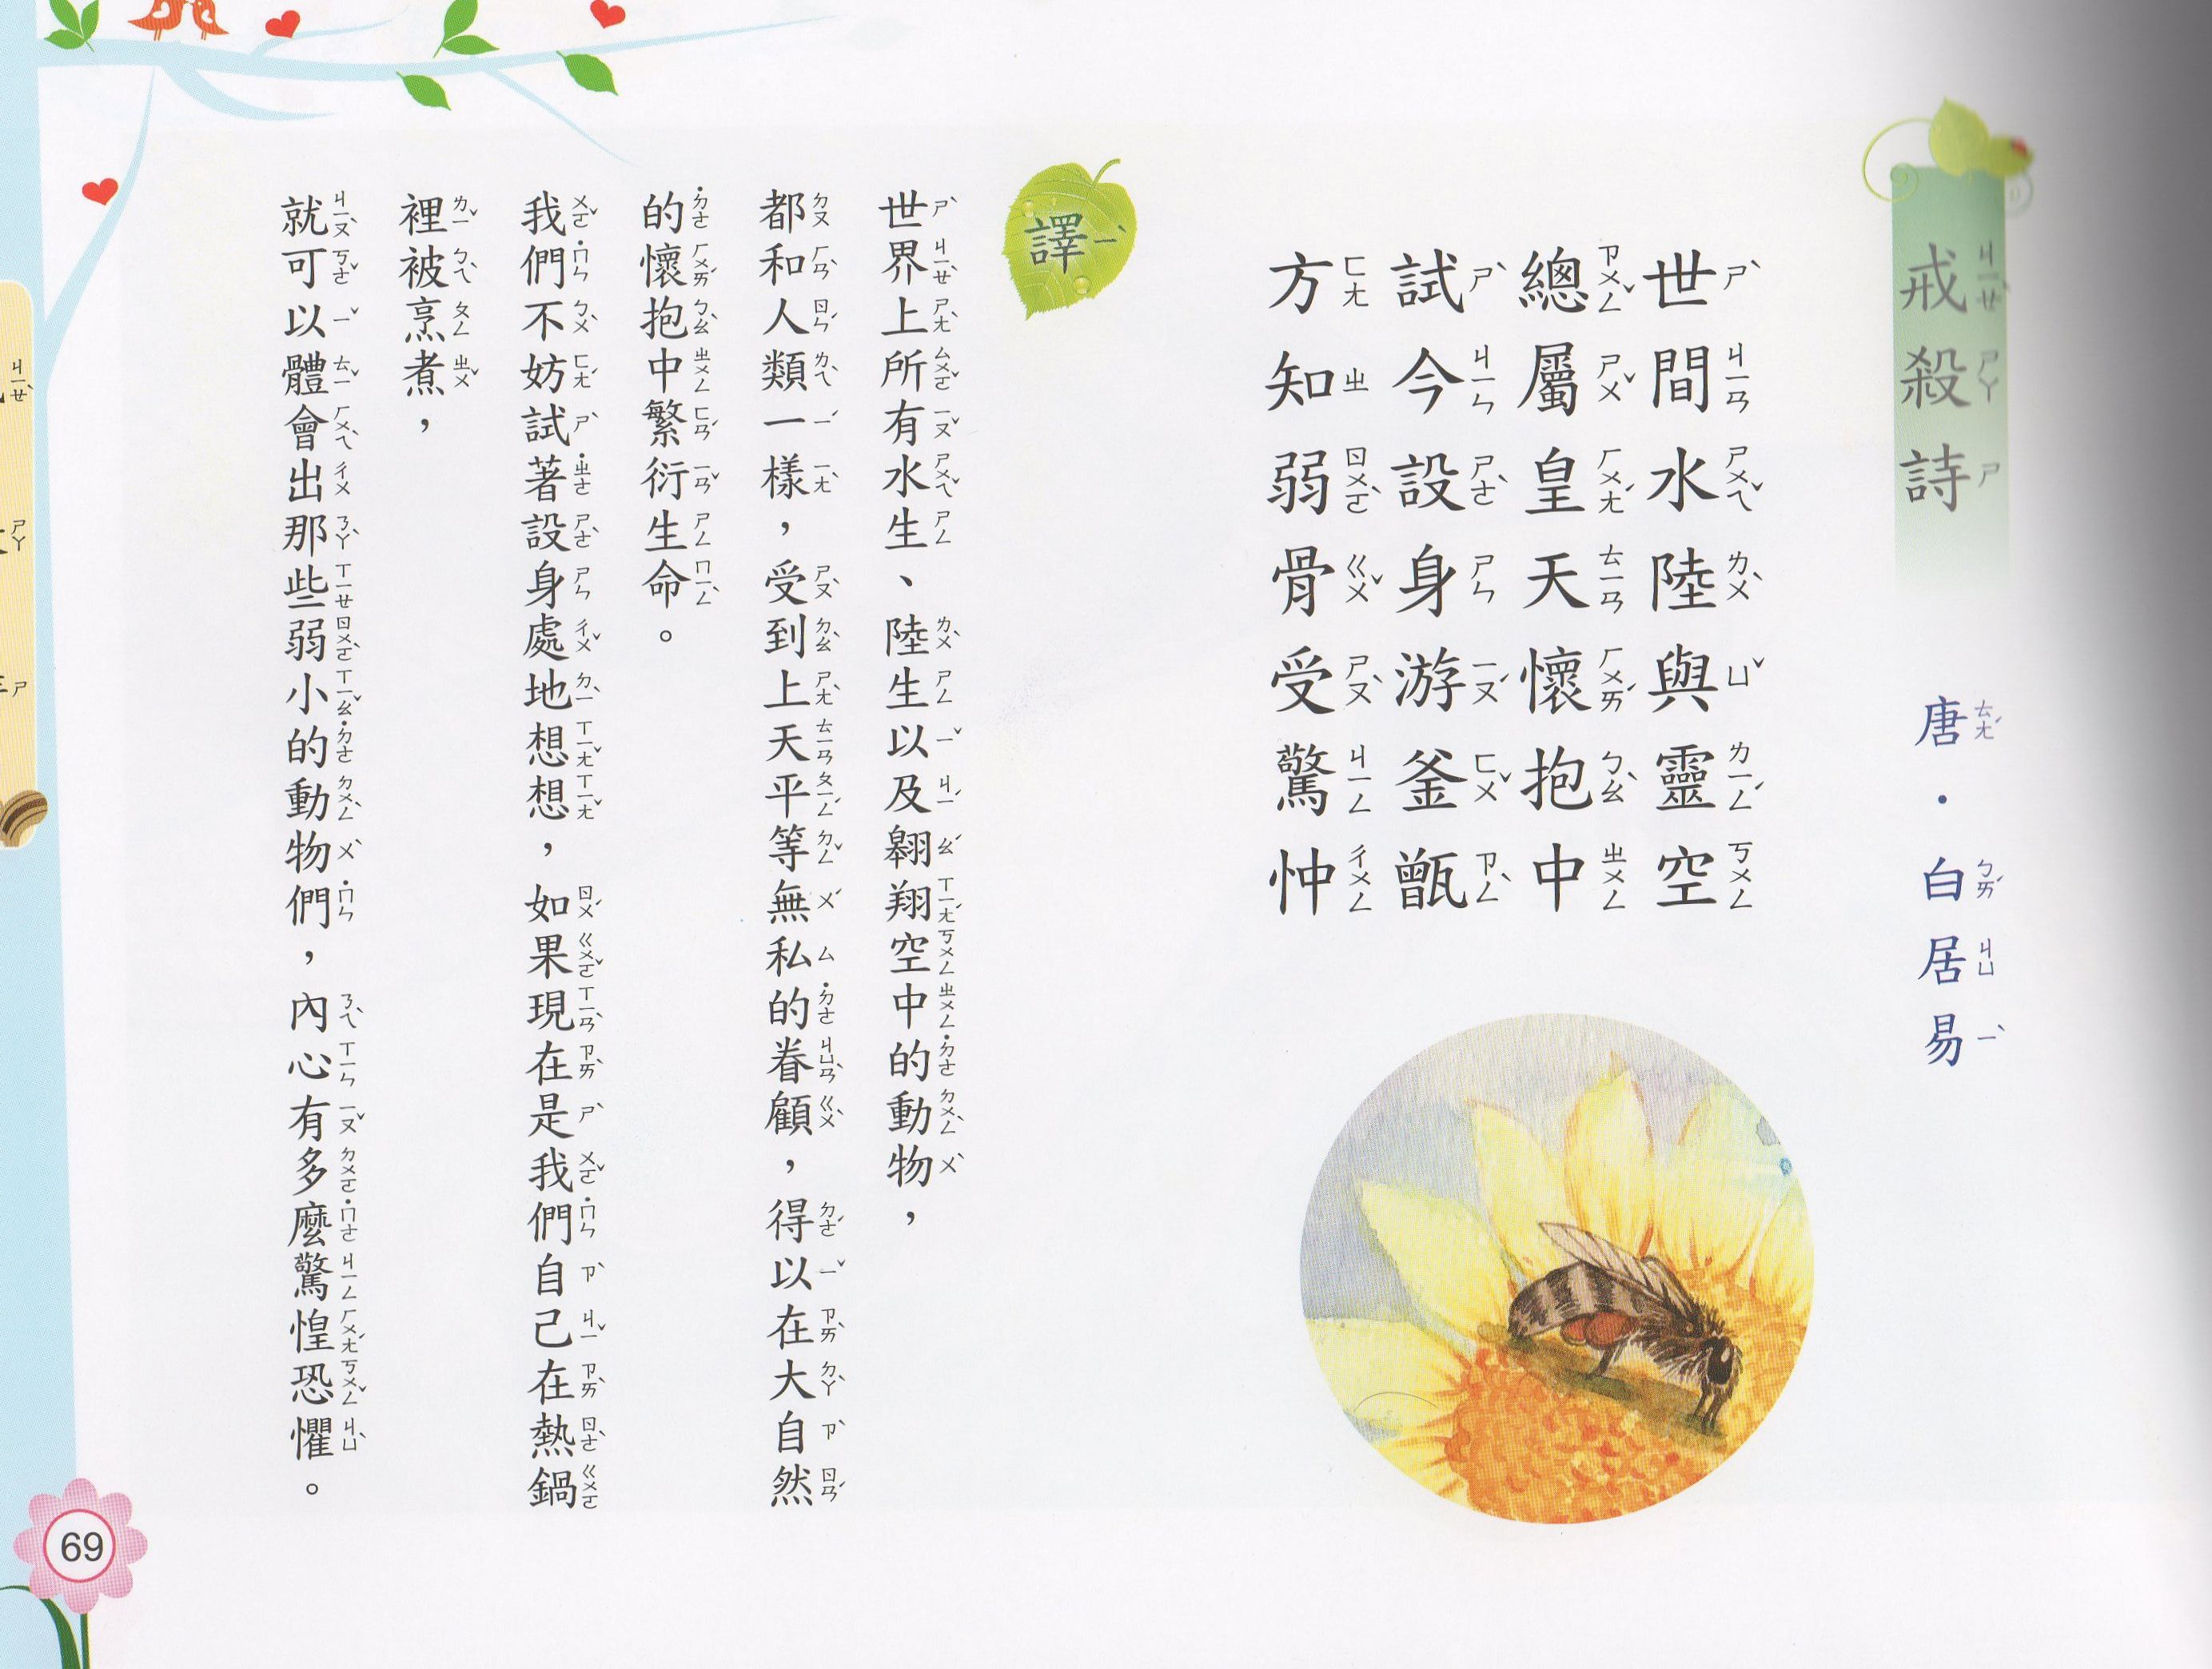 戒殺詩
唐・白居易
世間水陸與靈空
總屬皇天懷抱中
試今設身游釜甑
方知弱骨受驚忡
譯
世界上所有水生、陸生以及翱翔空中的動物，
都和人類一樣，受到上天平等無私的眷顧，得以在大自然
的懷抱中繁衍生命。
我們不妨試著設身處地想想，如果現在是我們自己在熱鍋
裡被烹煮，
就可以體會出那些弱小的動物們，內心有多麼驚惶恐懼。
69